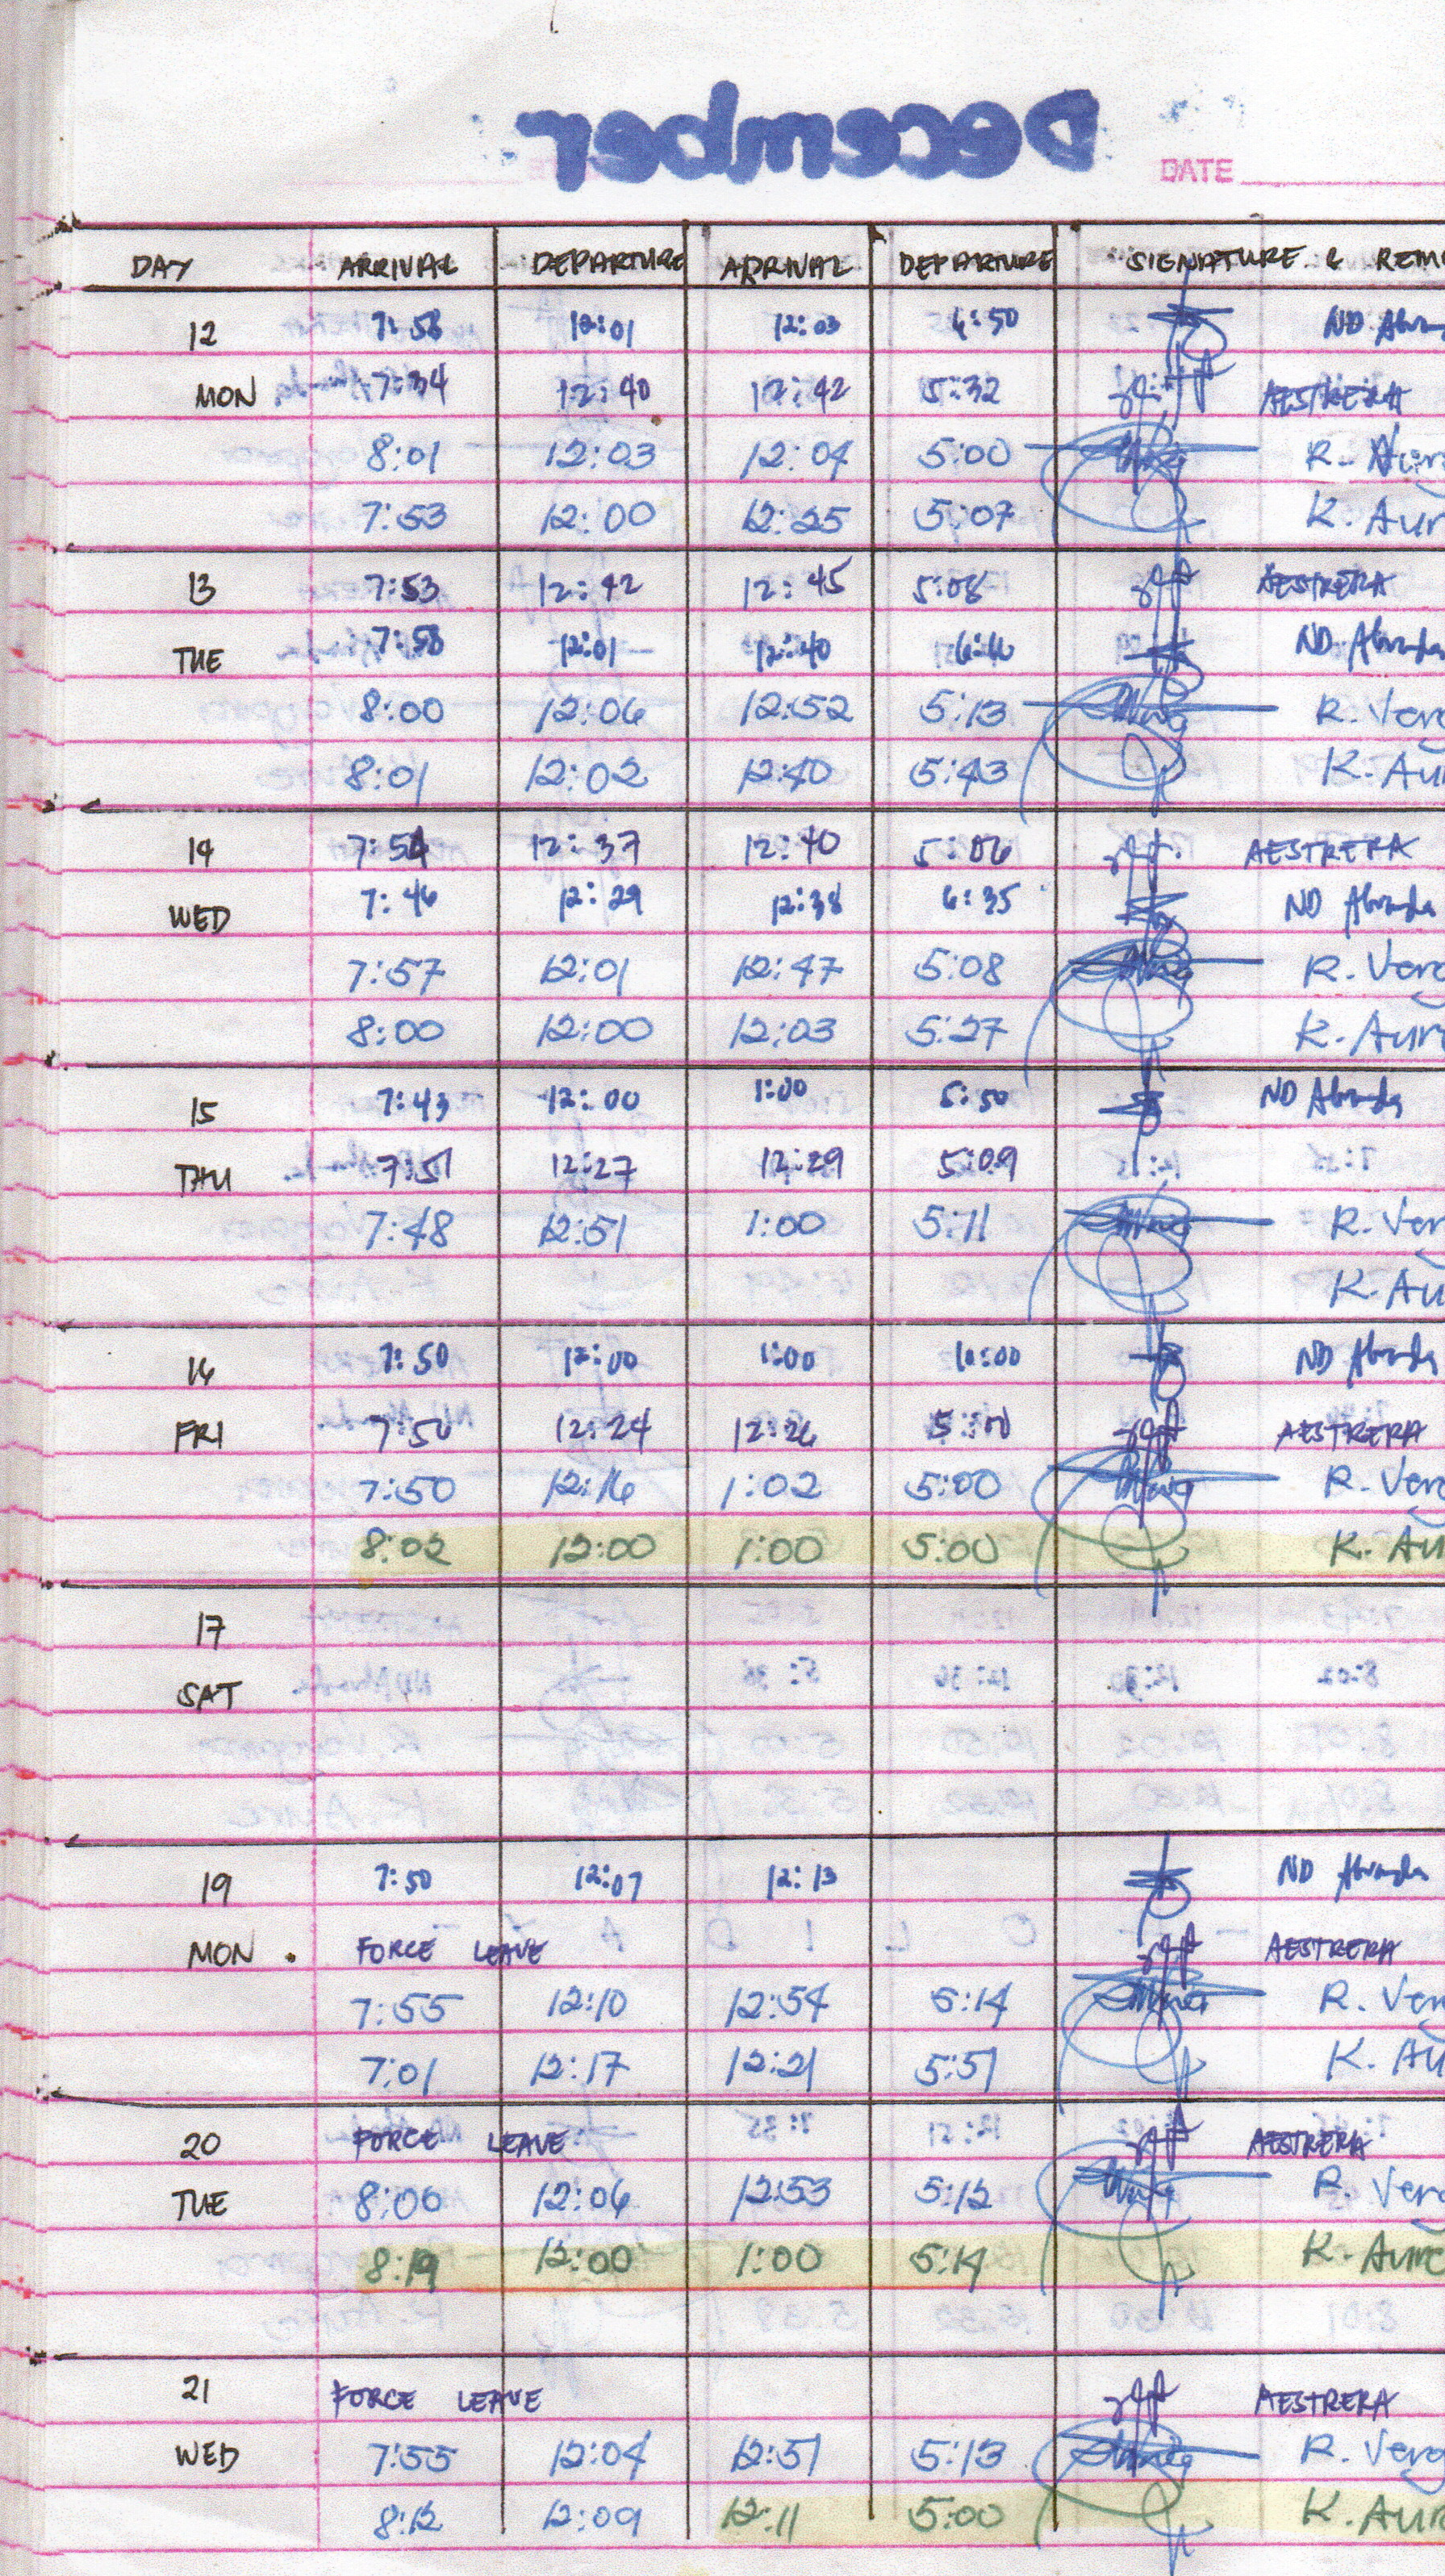 December
DATE
DAY ARRIVAL DEPARTURE ARRIVAL DEPARTURE SIGNATURE & REM
12 7:58 12:01 12:03 6:50 ND Abrada
MON 7:34 12:40 12:42 5:32 AESTRERA
8:01 12:03 12:04 5:00 R.
7:53 12:00 12:25 5:07 K. Aur
13 7:53 12:42 12:45 5:08 AESTRERA
TUE 7:58 12:01 12:40 6:16 ND Abrada
8:00 12:06 12:52 5:13 R. Verg
8:01 12:02 12:40 5:43 K. Aur
14 7:54 12:37 12:40 5:06 AESTRERA
WED 7:46 12:29 12:38 6:35 ND Abrada
7:57 12:01 12:47 5:08 R. Verg
8:00 12:00 12:03 5:27 K. Aur
15 7:43 12:00 1:00 5:50 ND Abrada
THU 7:51 12:27 12:29 5:09
7:48 12:51 1:00 5:11 R. Ver
K. Au
16 7:50 12:00 1:00 ND Abrada
FRI 7:50 12:24 12:26 AESTRERA
7:50 12:16 1:02 5:00 R. Verg
8:02 12:00 1:00 5:00 K. Au
17
SAT
19 7:50 12:07 12:13 ND Abrada
MON FORCE LEAVE AESTRERA
7:55 12:10 12:54 5:14 R. Ver
7:01 12:17 12:21 5:51 K. Au
20 FORCE LEAVE AESTRERA
TUE 8:00 12:06 12:53 5:12 R. Verg
8:19 12:00 1:00 5:14 K. Aure
21 FORCE LEAVE AESTRERA
WED 7:55 12:04 12:51 5:13 R. Verg
8:12 12:09 12:11 5:00 K. Aur